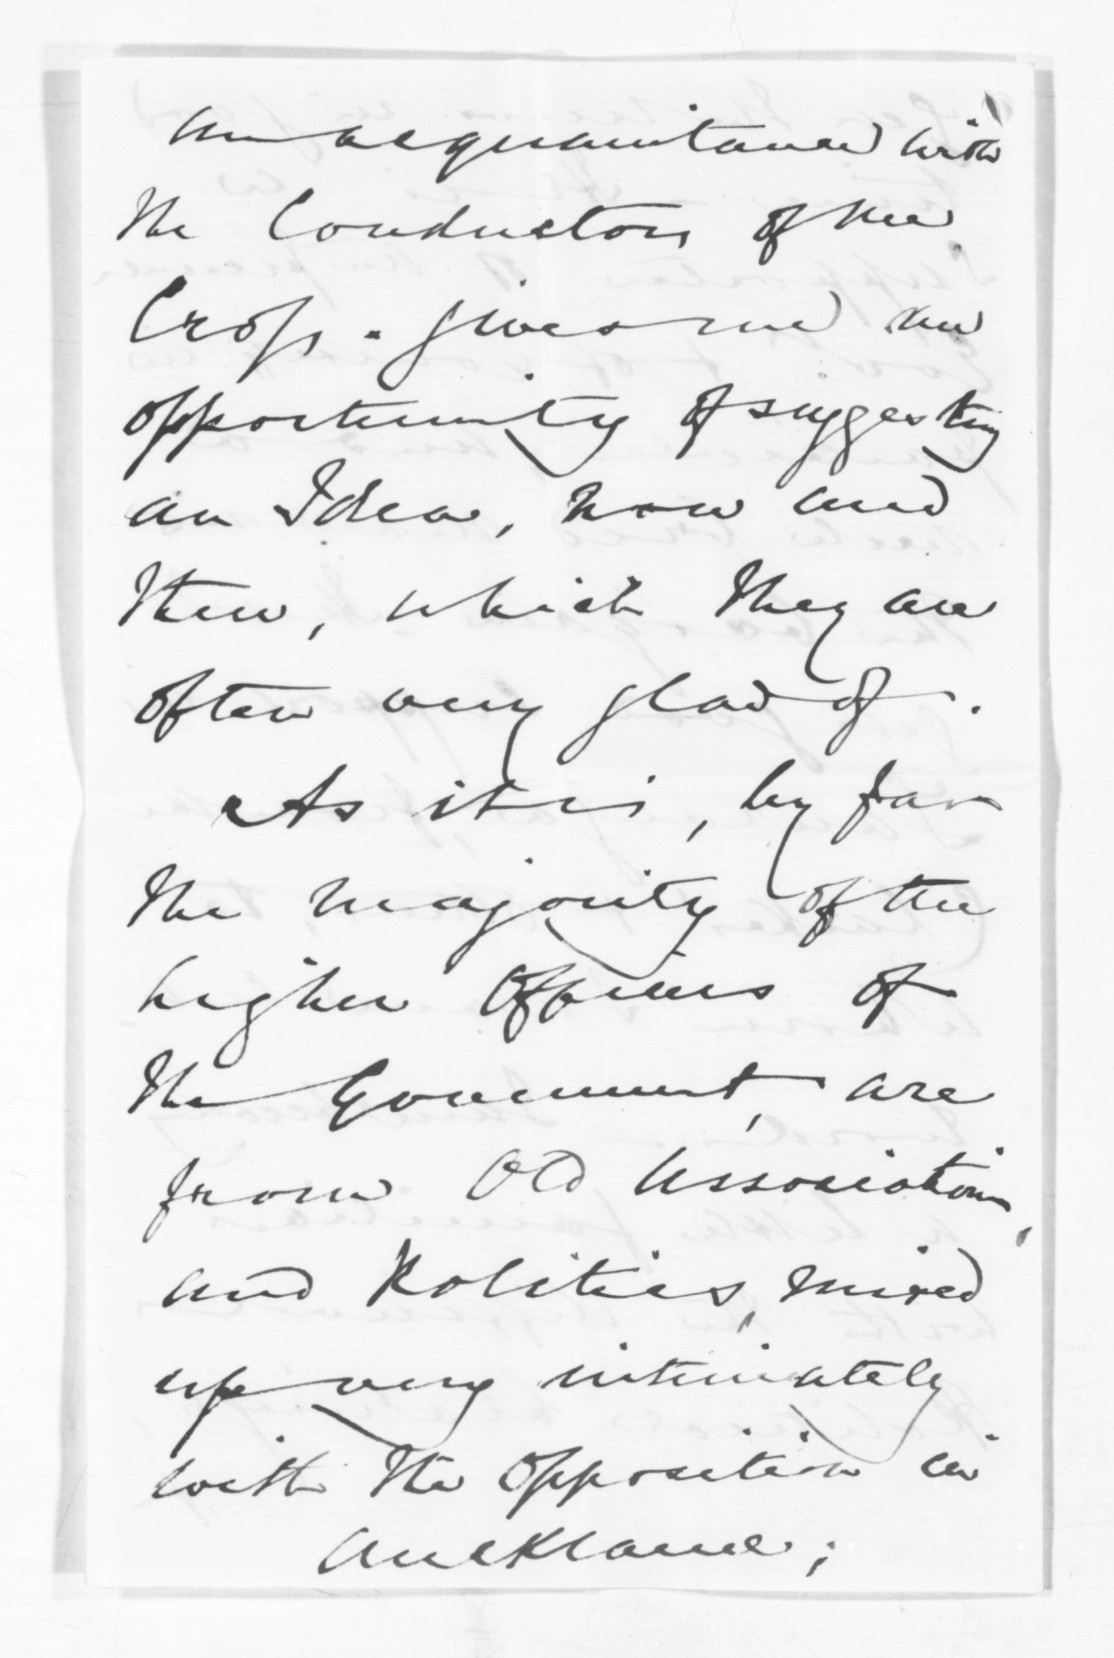 an acquaintance with
the Conductors of the
Cross. gives me an
opportunity of suggesting
an Idea, now and
then, which they are
often very glad of.
As it is, by far
the majority of the
higher Officers of
the Government, are
from Old Associations,
and Politics, mixed
up very intimately
with the opposition in
Auckland;